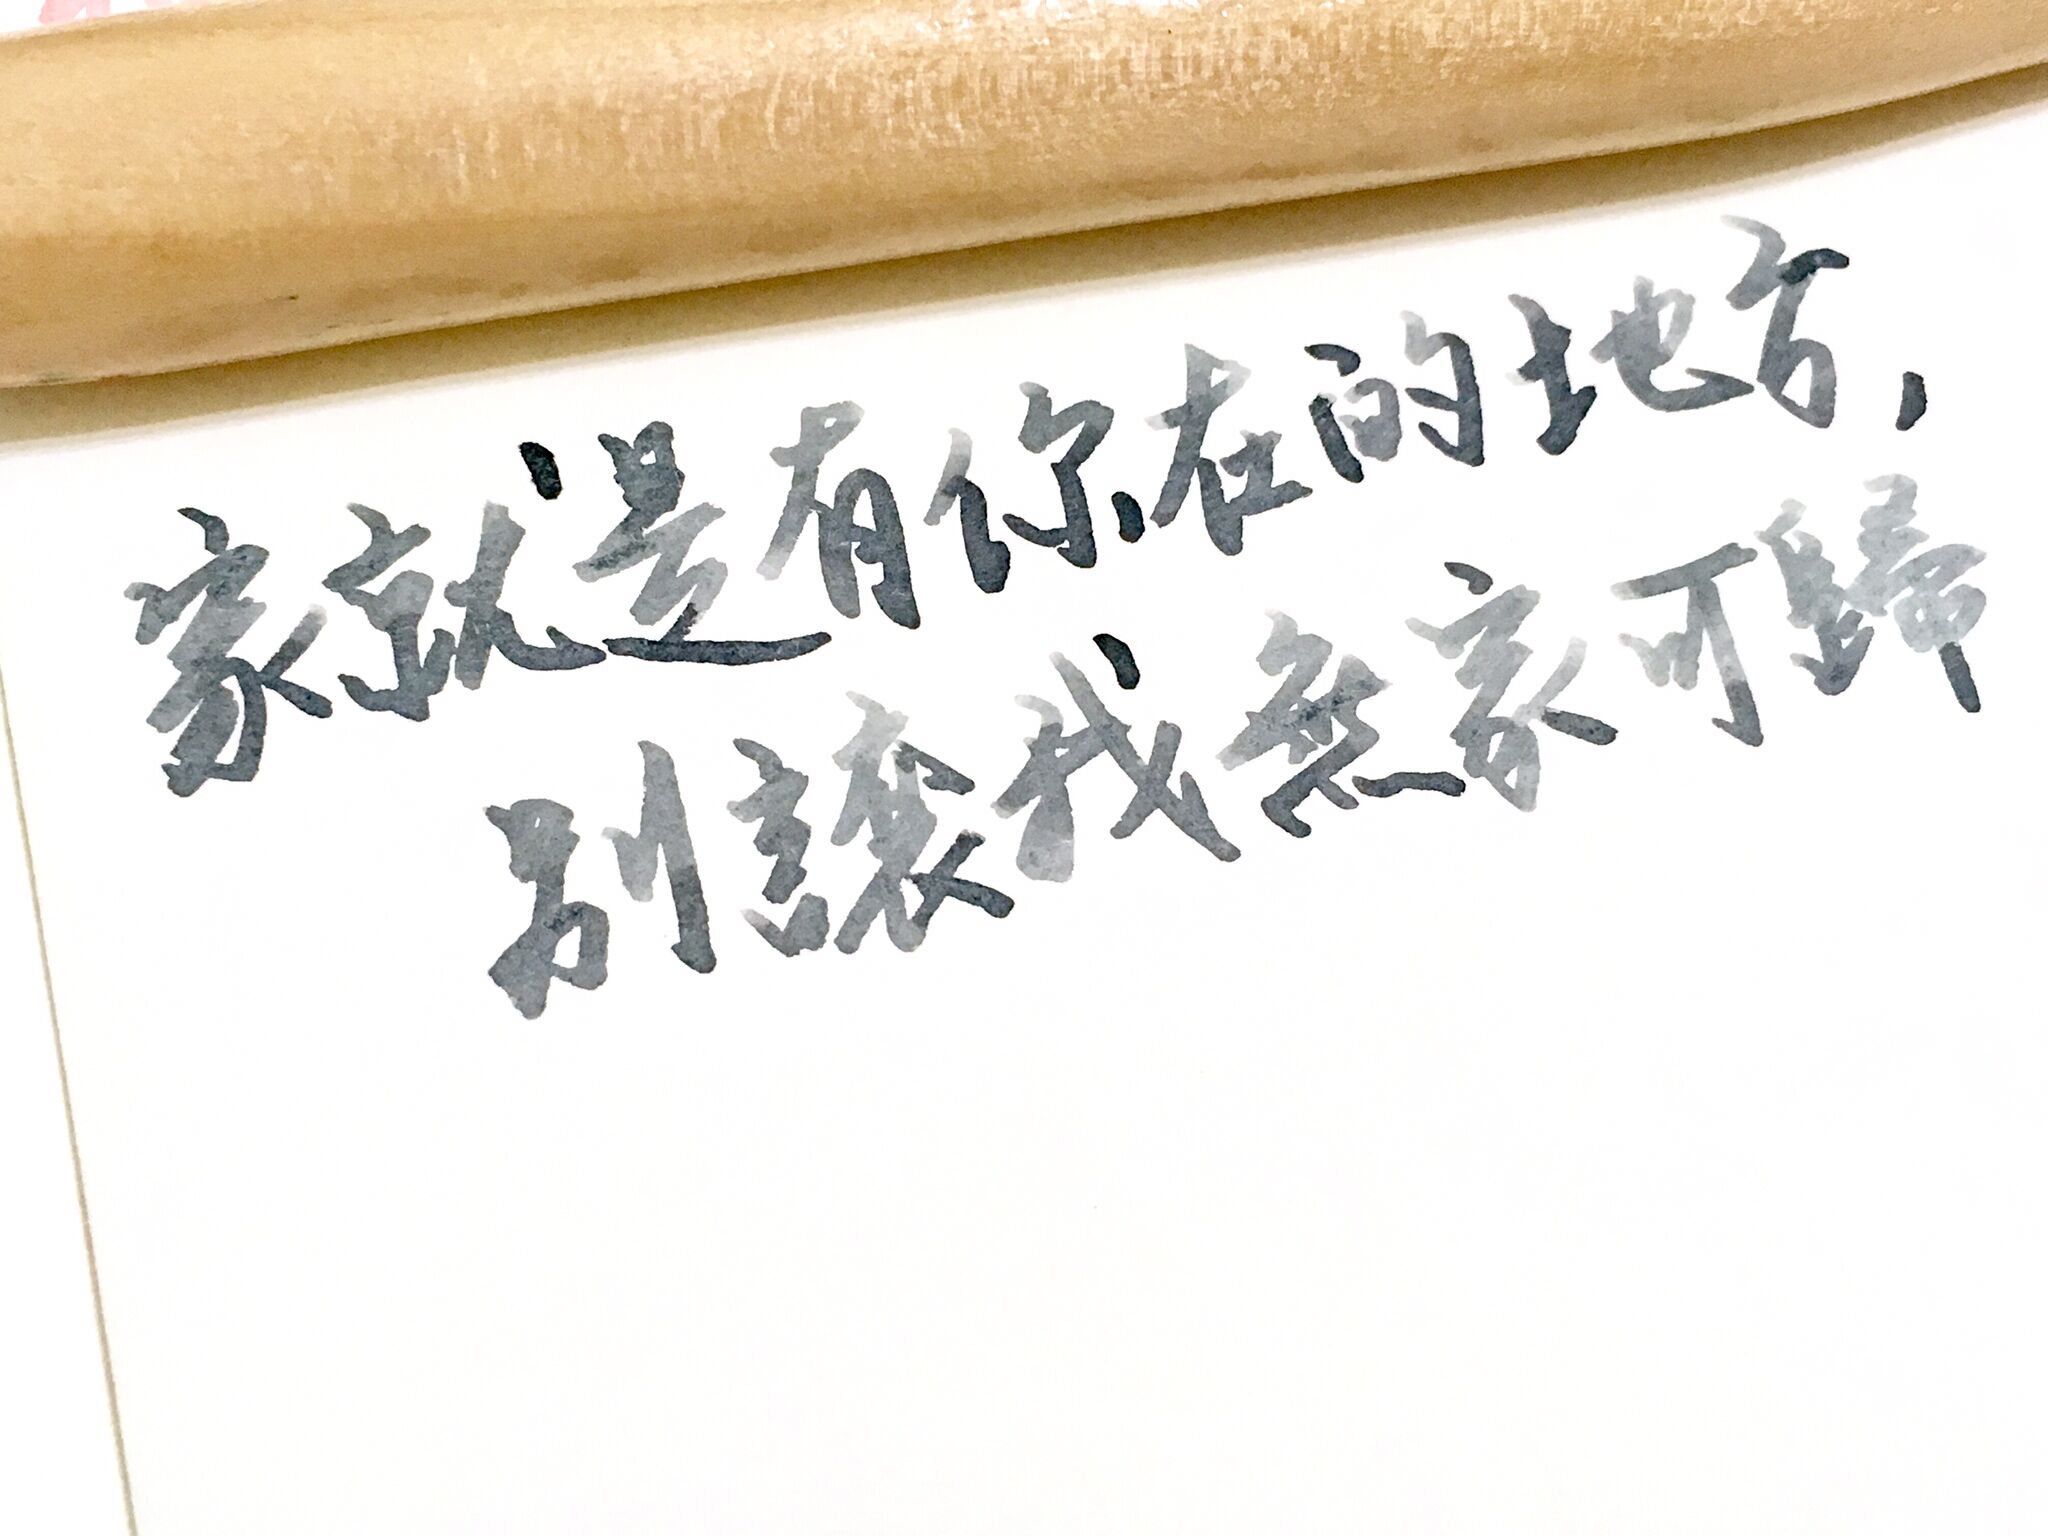 家就是有你在的地方，
別讓我無家可歸